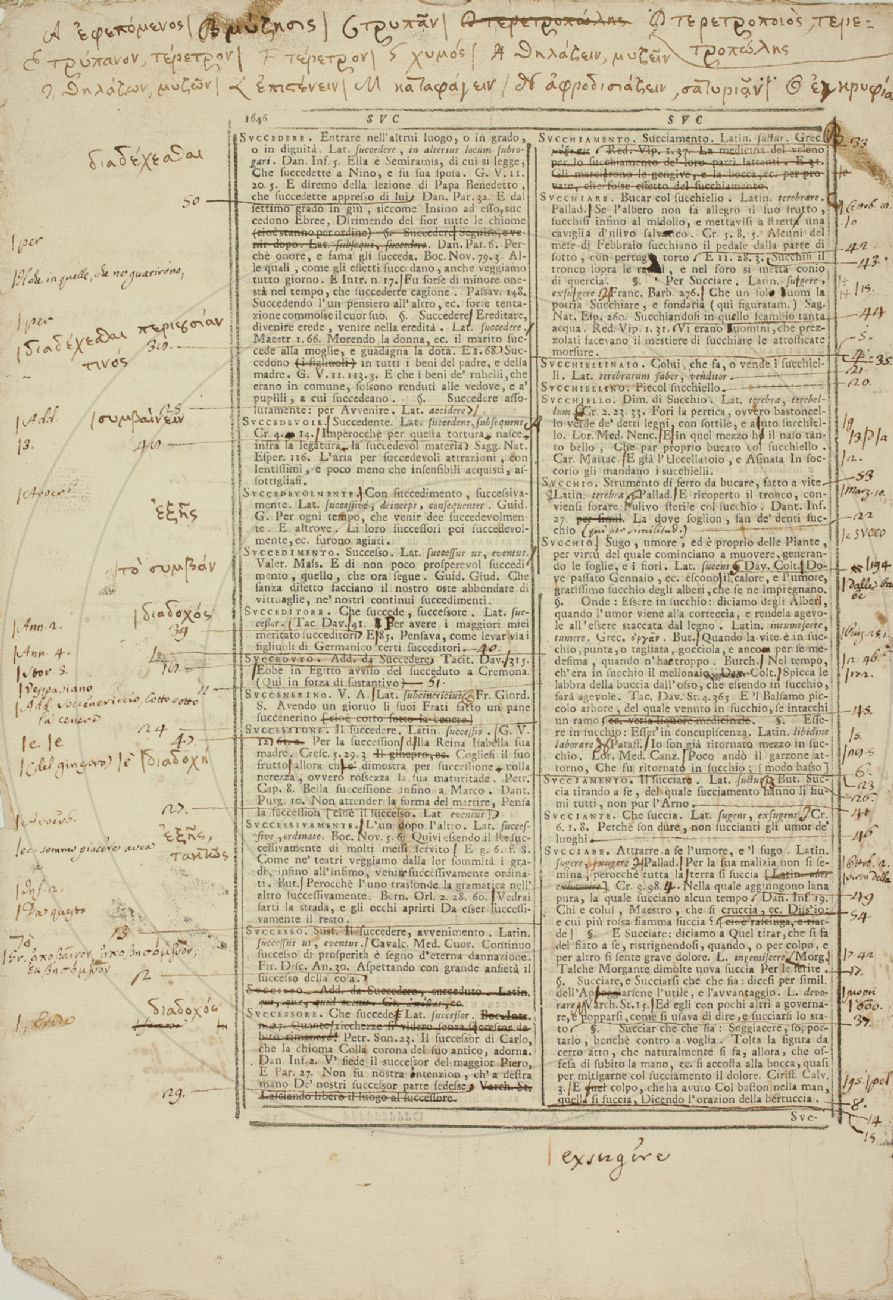 A ἐφεπόμενος | B μύζησις | C τρυπᾶν | D τερετροπώλης D τερετροποιὸς, τερε-
τροπώλης
E τρύπανον, τέρετρον | F τέρετρον | G χυμός | H θηλάζειν, μυζεῖν
I θηλάζων, μυζῶν | L ἐπισένειν | M καταφάγειν | N ἀφροδισιάζειν, σατυριᾷν
1646 SVC SVC
διαδέχεσθαι
50
| per
| che in quelle, che no guarirono,
| per
| διαδέχεσθαι
τινός
39.
| Add.
| συμβαίνειν
ἑξῆς
τὸ συμβάν
| διαδοχός
| Ann. 2.
| Ann. 4.
| Stor. 3.
| Vespasiano
24
| διαδοχή
27.
ἑξῆς,
| Inf. 2.
| Da questo
13
52
διαδοχός
29.
SVCCEDERE. Entrare nell'altrui luogo, o in grado,
o in dignità. Lat. succedere, in alterius locum subro-
gari. Dan. Inf. 5. Ella è Semiramis, di cui si legge,
Che succedette a Nino, e fu sua sposa. G. V. 11.
20. 5. E diremo della lezione di Papa Benedetto,
che succedette appresso di lui. Dan. Par. 32. E dal
settimo grado in giù, siccome Insino ad esso, suc-
cedono Ebree, Dirimendo del fior tutte le chiome
(cioè stanno per ordine) §. Succedere: Seguire, o ve-
nir dopo. Lat. subsequi, succedere. Dan. Par. 6. Per-
chè onore, e fama gli succeda. Boc. Nov. 79. 3. Al-
le quali, come gli effetti succedano, anche veggiamo
tutto giorno. E Intr. n. 17. Fu forse di minore one-
stà nel tempo, che succedette cagione. Passav. 148.
Succedendo l'un pensiero all'altro, ec. forte tenta-
zione commosse il cuor suo. §. Succedere: Ereditare,
divenire erede, venire nella eredità. Lat. succedere.
Maestr. 1. 66. Morendo la donna, ec. il marito suc-
cede alla moglie, e guadagna la dota. E 1. 68. Suc-
cedono (i figliuoli) in tutti i beni del padre, e della
madre. G. V. 11. 113. 5. E che i beni de' rubelli, che
erano in comune, fossono renduti alle vedove, e a'
pupilli, a cui succedeano. §. Succedere asso-
lutamente: per Avvenire. Lat. accidere.
SVCCEDEVOLE. Succedente. Lat. succedens, subsequens.
Cr. 4. 14. Imperocchè per questa tortura nasce
infra la legatura la succedevol materia. Sagg. Nat.
Esper. 116. L'aria per succedevoli attrazioni, con
lentissimi, e poco meno che insensibili acquisti, as-
sottigliasi.
SVCCEDEVOLMENTE. Con succedimento, successiva-
mente. Lat. successive, deinceps, consequenter. Guid.
G. Per ogni tempo, che venir dee succedevolmen-
te. E altrove. Li loro successori poi succedevol-
mente, ec. furono agiati.
SVCCEDIMENTO. Successo. Lat. successus us, eventus.
Valer. Mass. E di non poco prosperevol succedi-
mento, quello, che ora segue. Guid. Giud. Che
sanza difetto facciano il nostro oste abbondare di
vittuaglie, ne' nostri continui succedimenti.
SVCCEDITORE. Che succede, successore. Lat. suc-
cessor. Tac. Dav. 41. Per avere i maggiori miei
meritato succeditori. E 85. Pensava, come levar via i
figliuoli di Germanico certi succeditori. 40.
SVCCEDVTO. Add. da Succedere. Tacit. Dav. 315.
Ebbe in Egitto avviso del succeduto a Cremona.
(Qui in forza di sustantivo) 51.
SVCCENERINO. V. A. Lat. subcinericius. Fr. Giord.
S. Avendo un giorno li suoi Frati fatto un pane
succenerino (cioè cotto sotto la cenere)
SVCCESSIONE. Il succedere. Latin. successio. G. V.
Per la succession della Reina Isabella sua
madre. Cresc. 5. 29. 2. Il ginepro, ec. Cogliesi il suo
frutto allora che dimostra per successione colla
nerezza, ovvero rossezza la sua maturitade. Petr.
Cap. 8. Bella successione infino a Marco. Dant.
Purg. 10. Non attender la forma del martire, Pensa
la succession (cioè il successo. Lat. eventus)
SVCCESSIVAMENTE. L'un dopo l'altro. Lat. succes-
sive, ordinate. Boc. Nov. 5. 6. Quivi essendo il Re suc-
cessivamente di molti messi servito. E g. 6. f. 8.
Come ne' teatri veggiamo dalla lor sommità i gra-
di, infino all'infimo, venire successivamente ordina-
ti. But. Perocchè l'uno trasfonde la gramatica nell'
altro successivamente. Bern. Orl. 2. 28. 60. Vedrai
farti la strada, e gli occhi aprirti Da esser successi-
vamente il resto.
SVCCESSO. Sust. Il succedere, avvenimento. Latin.
successus us, eventus. Cavalc. Med. Cuor. Continuo
successo di prosperità è segno d'eterna dannazione.
Fir. Disc. An. 30. Aspettando con grande ansietà il
successo della cosa.
SVCCESSO. Add. da Succedere, succeduto. Latin.
SVCCESSORE. Che succede. Lat. successor. Boc. Intr.
n. 27. Quante ricchezze si videro senza successor de-
bito rimanere! Petr. Son. 23. Il successor di Carlo,
che la chioma Colla corona del suo antico, adorna.
Dan. Inf. 2. V' siede il successor del maggior Piero,
E Par. 27. Non fu nostra intenzion, ch'a destra
mano De' nostri successor parte sedesse. Varch. St.
Lasciando libero il luogo al successore.
SVCCHIAMENTO. Succiamento. Latin. suctus. Grec.
Red. Vip. 1. 37. La medicina del veleno
per lo succhiamento de' loro parti lattanti. E 31.
Gli marcirono le gengive, e la bocca, ec. per pro-
vare, che fosse effetto del succhiamento.
SVCCHIARE. Bucar col succhiello. Latin. terebrare.
Pallad. Se l'albero non fa allegro il suo frutto,
succhisi infino al midollo, e mettavisi a stretta una
caviglia d'ulivo salvatico. Cr. 5. 8, 5. Alcuni del
mese di Febbraio succhiano il pedale dalla parte di
sotto, con pertugio torto. E 11. 28. 3. Succhisi il
tronco sopra le radici, e nel foro si metta conio
di quercia. §. Per Succiare. Latin. sugere,
exsugere. Franc. Barb. 276. Che un solo huom la
potria Succhiare, e fonderia (qui figuratam.) Sag.
Nat. Esp. 260. Succhiandosi in quello scambio tanta
acqua. Red. Vip. 1. 31. Vi erano uomini, che prez-
zolati facevano il mestiere di succhiare le attossicate
morsure.
SVCCHIELLINAIO. Colui, che fa, o vende i succhiel-
li. Lat. terebrarum faber, venditor.
SVCCHIELLINO. Piccol succhiello.
SVCCHIELLO. Dim. di Succhio. Lat. terebra, terebel-
lum. Cr. 2. 23. 33. Fori la pertica, ovvero bastoncel-
lo verde de' detti legni, con sottile, e acuto succhiel-
lo. Lor. Med. Nenc. E in quel mezzo ha il naso tan-
to bello, Che par proprio bucato col succhiello.
Car. Mattac. E già l'Uccellatoio, e Asinaia In soc-
corso gli mandano i succhielli.
SVCCHIO. Strumento di ferro da bucare, fatto a vite.
Latin. terebra. Pallad. E ricoperto il tronco, con-
viensi forare l'ulivo sterile col succhio. Dant. Inf.
27. per simil. La dove soglion, fan de' denti suc-
chio
SVCCHIO. Sugo, umore, ed è proprio delle Piante,
per virtù del quale cominciano a muovere, generan-
do le foglie, e i fiori. Lat. succus. Dav. Colt. Do-
ve passato Gennaio, ec. escono il calore, e l'umore,
gratissimo succhio degli alberi, che se ne impregnano.
§. Onde: Essere in succhio: diciamo degli Alberi,
quando l'umor viene alla corteccia, e rendela agevo-
le all'essere staccata dal legno. Latin. intumescere,
tumere. Grec. ὀργᾷν. But. Quando la vite è in suc-
chio, punta, o tagliata, gocciola, e ancora per se me-
desima, quando n'ha troppo. Burch. Nel tempo,
ch'era in succhio il mellonaio. Dav. Colt. Spicca le
labbra della buccia dall'osso, che essendo in succhio,
sarà agevole. Tac. Dav. St. 4. 365. E 'l Balsamo pic-
colo arbore, del quale venuto in succhio, se intacchi
un ramo ec. versa liquore medicinale. §. Esse-
re in succhio: Esser in concupiscenza. Latin. libidine
laborare. Pataff. Io son già ritornato mezzo in suc-
chio. Lor. Med. Canz. Poco andò il garzone at-
torno, Che fu ritornato in succhio; [modo basso]
SVCCIAMENTO. Il succiare. Lat. suctus. But. Suc-
cia tirando a se, del quale succiamento hanno li fiu-
mi tutti, non pur l'Arno.
SVCCIANTE. Che succia. Lat. sugens, exsugens. Cr.
6. 1. 8. Perchè son dure, non succianti gli umor de'
luoghi.
SVCCIARE. Attrarre a se l'umore, e 'l sugo. Latin.
sugere, exsugere. Pallad. Per la sua malizia non si se-
mina, perocchè tutta la terra si succia
Cr. 9. 98. 4. Nella quale aggiungono lana
pura, la quale succiano alcun tempo. Dan. Inf. 19.
Chi è colui, Maestro, che si cruccia, ec. Diss'io:
e cui più rossa fiamma succia?
§. E Succiare: diciamo a Quel tirar, che si fa
del fiato a se, ristrignendosi, quando, o per colpo, e
per altro si sente grave dolore. L. ingemiscere. Morg.
Talche Morgante dimolte nova succia Per le ferite.
§. Succiare, e Succiarsi che che sia: dicesi per simil.
dell'Appropriarsene l'utile, e l'avvantaggio. L. devo-
rare. Varch. St. 15. Ed egli con pochi altri a governa-
re, e popparsi, come si usava di dire, e succiarsi lo sta-
to §. Succiar che che sia: Soggiacere, soppor-
tarlo, benchè contro a voglia. Tolta la figura da
certo atto, che naturalmente si fa, allora, che of-
fesa di subito la mano, ec. si accosta alla bocca, quasi
per mitigarne col succiamento il dolore. Ciriff. Calv.
3. E quel colpo, che ha avuto Col baston nella man,
quella si succia, Dicendo l'orazion della bertuccia.
SVC-
33
42
43.
44
5.
35
21.
20.
53
22
45.
6.
23
26.
46
49
54
12.
8.
14
15
| exsugere